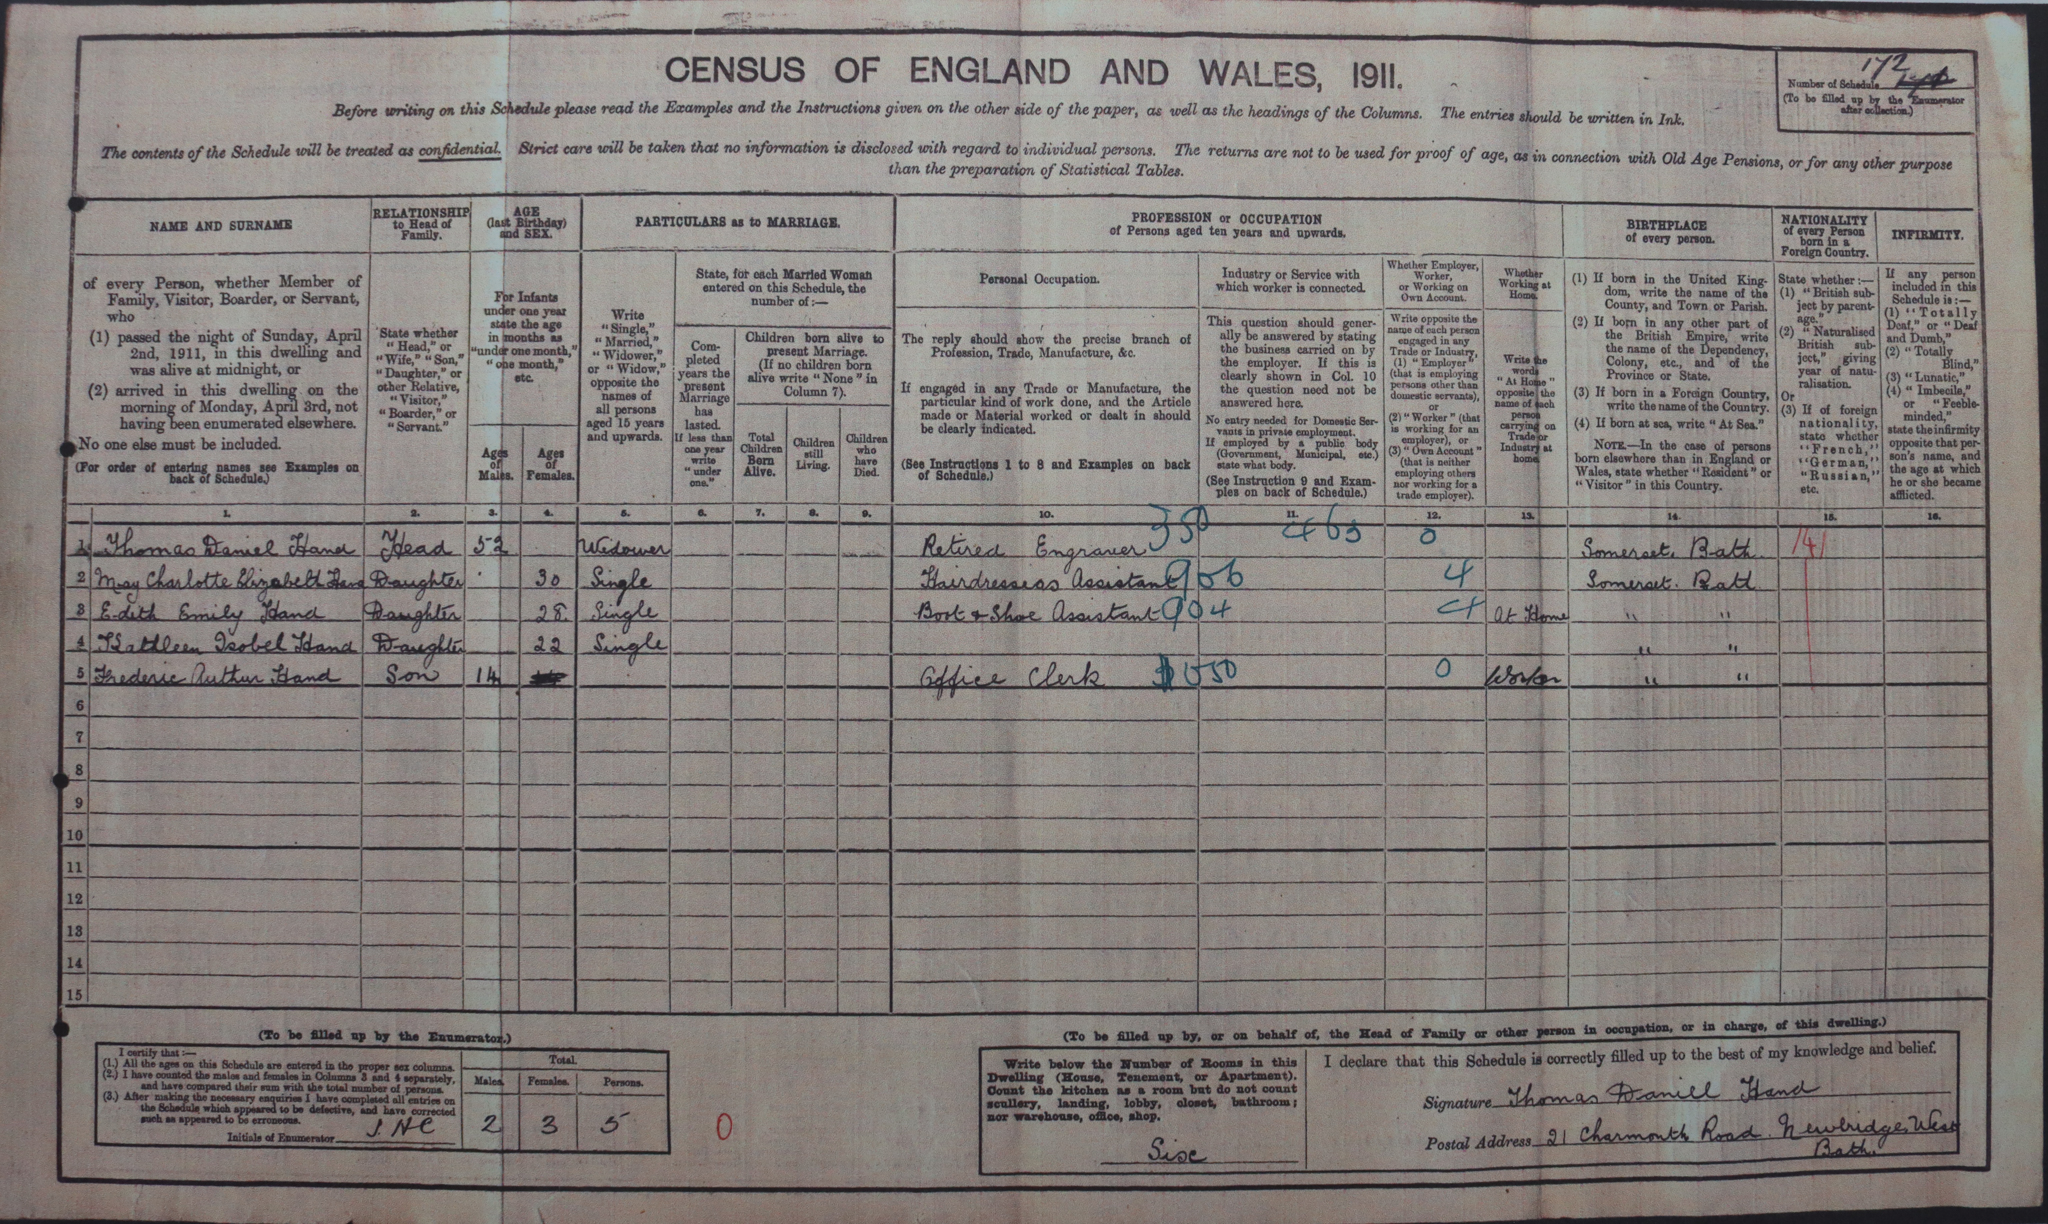 CENSUS OF ENGLAND AND WALES, 1911.
172
Number of Schedule
(To be filled up by the Enumerator
after collection.)
Before writing on this Schedule please read the Examples and the Instructions given on the other side of the paper, as well as the headings of the Columns. The entries should be written in Ink.
The contents of the Schedule will be treated as confidential. Strict care will be taken that no information is disclosed with regard to individual persons. The returns are not to be used for proof of age, as in connection with Old Age Pensions, or for any other purpose
than the preparation of Statistical Tables.
NAME AND SURNAME
of every Person, whether Member of
Family, Visitor, Boarder, or Servant,
who
(1) passed the night of Sunday, April
2nd, 1911, in this dwelling and
was alive at midnight, or
(2) arrived in this dwelling on the
morning of Monday, April 3rd, not
having been enumerated elsewhere.
No one else must be included.
(For order of entering names see Examples on
back of Schedule.)
RELATIONSHIP
to Head of
Family.
State whether
"Head," or
"Wife," "Son,"
"Daughter," or
other Relative,
"Visitor,"
"Boarder," or
"Servant."
AGE
(last Birthday)
and SEX.
For Infants
under one year
state the age
in months as
"under one month,"
"one month,"
etc.
Ages
of
Males.
Ages
of
Females.
PARTICULARS as to MARRIAGE.
Write
"Single,"
"Married,"
"Widower,"
or "Widow,"
opposite the
names of
all persons
aged 15 years
and upwards.
State, for each Married Woman
entered on this Schedule, the
number of:—
Completed
years the
present
Marriage
has
lasted.
If less than
one year
write
"under
one."
Children born alive to
present Marriage.
(If no children born
alive write "None" in
Column 7).
Total
Children
Born
Alive.
Children
still
Living.
Children
who
have
Died.
PROFESSION or OCCUPATION
of Persons aged ten years and upwards.
Personal Occupation.
The reply should show the precise branch of
Profession, Trade, Manufacture, &c.
If engaged in any Trade or Manufacture, the
particular kind of work done, and the Article
made or Material worked or dealt in should
be clearly indicated.
(See Instructions 1 to 8 and Examples on back
of Schedule.)
Industry or Service with
which worker is connected.
This question should gener-
ally be answered by stating
the business carried on by
the employer. If this is
clearly shown in Col. 10
the question need not be
answered here.
No entry needed for Domestic Ser-
vants in private employment.
If employed by a public body
(Government, Municipal, etc.)
state what body.
(See Instruction 9 and Exam-
ples on back of Schedule.)
Whether Employer,
Worker,
or Working on
Own Account.
Write opposite the
name of each person
engaged in any
Trade or Industry,
(1) "Employer"
(that is employing
persons other than
domestic servants),
or
(2) "Worker" (that
is working for an
employer), or
(3) "Own Account"
(that is neither
employing others
nor working for a
trade employer).
Whether
Working at
Home.
Write the
words
"At Home"
opposite the
name of each
person
carrying on
Trade or
Industry at
home.
BIRTHPLACE
of every person.
(1) If born in the United King-
dom, write the name of the
County, and Town or Parish.
(2) If born in any other part of
the British Empire, write
the name of the Dependency,
Colony, etc., and of the
Province or State.
(3) If born in a Foreign Country,
write the name of the Country.
(4) If born at sea, write "At Sea."
NOTE.—In the case of persons
born elsewhere than in England or
Wales, state whether "Resident" or
"Visitor" in this Country.
NATIONALITY
of every Person
born in a
Foreign Country.
State whether:—
(1) "British sub-
ject by parent-
age."
(2) "Naturalised
British sub-
ject," giving
year of natu-
ralisation.
Or
(3) If of foreign
nationality,
state whether
"French,"
"German,"
"Russian,"
etc.
INFIRMITY.
If any person
included in this
Schedule is:—
(1) "Totally
Deaf," or "Deaf
and Dumb,"
(2) "Totally
Blind,"
(3) "Lunatic,"
(4) "Imbecile,"
or "Feeble-
minded,"
state the infirmity
opposite that per-
son's name, and
the age at which
he or she became
afflicted.
1. 2. 3. 4. 5. 6. 7. 8. 9. 10. 11. 12. 13. 14. 15. 16.
1 Thomas Daniel Hand Head 52 Widower Retired Engraver 350 463 0 Somerset. Bath. 141
2 May Charlotte Elizabeth Hand Daughter 30 Single Hairdressers Assistant 906 4 Somerset. Bath
3 Edith Emily Hand Daughter 28. Single Boot & Shoe Assistant 904 4 At Home " "
4 Kathleen Isobel Hand Daughter 22 Single " "
5 Frederic Arthur Hand Son 14 Office Clerk 050 0 Worker " "
6
7
8
9
10
11
12
13
14
15
(To be filled up by the Enumerator.)
I certify that:—
(1.) All the ages on this Schedule are entered in the proper sex columns.
(2.) I have counted the males and females in Columns 3 and 4 separately,
and have compared their sum with the total number of persons.
(3.) After making the necessary enquiries I have completed all entries on
the Schedule which appeared to be defective, and have corrected
such as appeared to be erroneous.
Initials of Enumerator
Total.
Males. Females. Persons.
2 3 5
0
(To be filled up by, or on behalf of, the Head of Family or other person in occupation, or in charge, of this dwelling.)
Write below the Number of Rooms in this
Dwelling (House, Tenement, or Apartment).
Count the kitchen as a room but do not count
scullery, landing, lobby, closet, bathroom;
nor warehouse, office, shop.
Six
I declare that this Schedule is correctly filled up to the best of my knowledge and belief.
Signature Thomas Daniell Hand
Postal Address 21 Charmouth Road. Newbridge West
Bath.